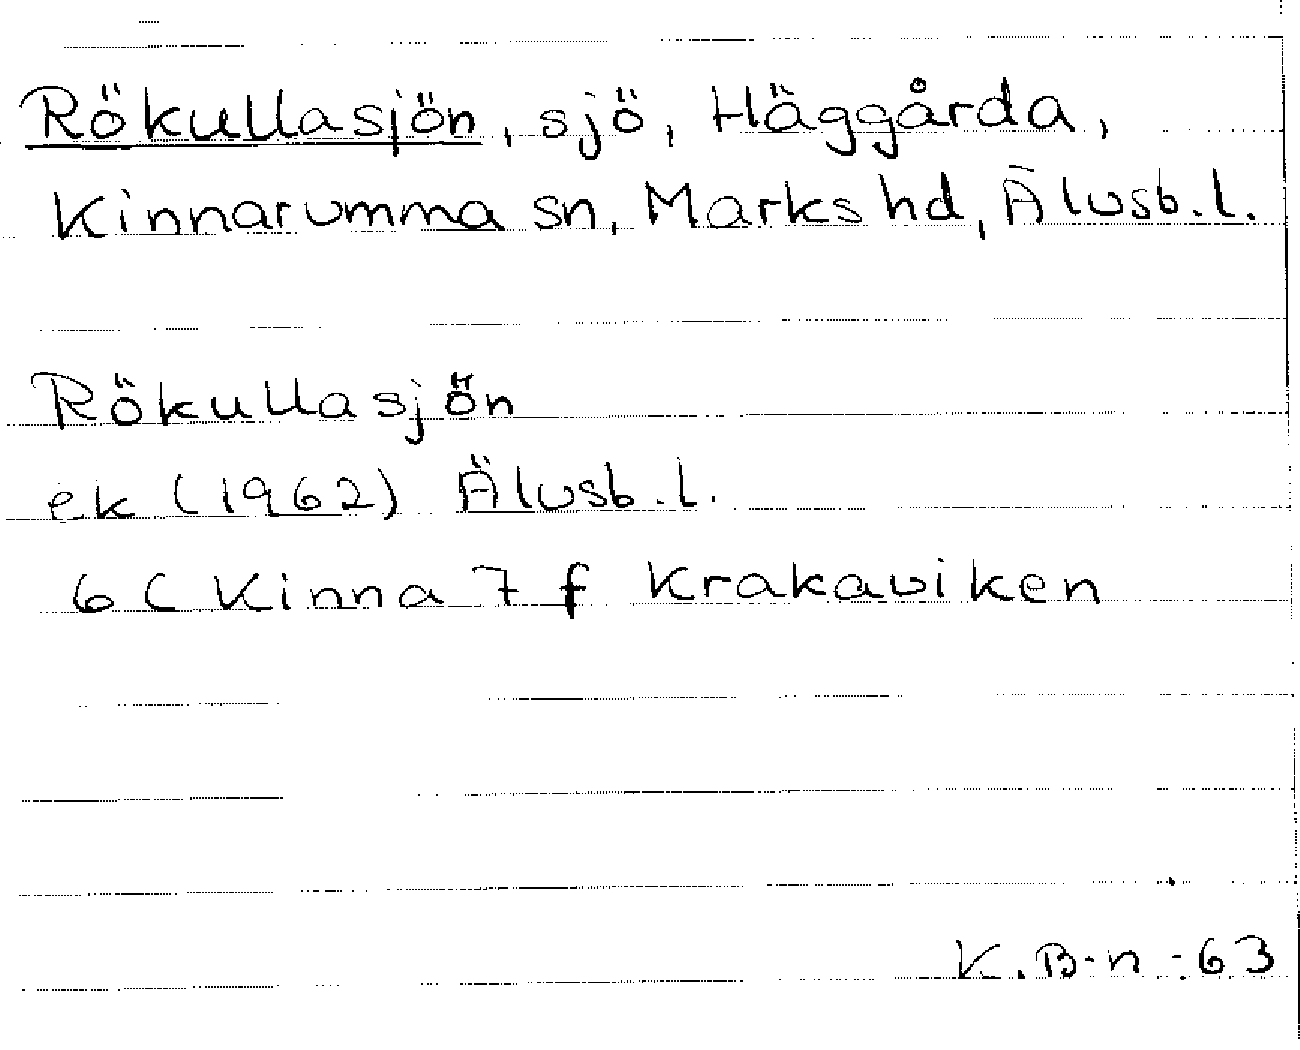 Rökullasjön, sjö, Häggårda,
Kinnarumma sn, Marks hd, Älvsb.l.
Rökullasjön
ek (1962) Älvsb.l.
6 C Kinna 7 f Krakaviken
K.B-n -63